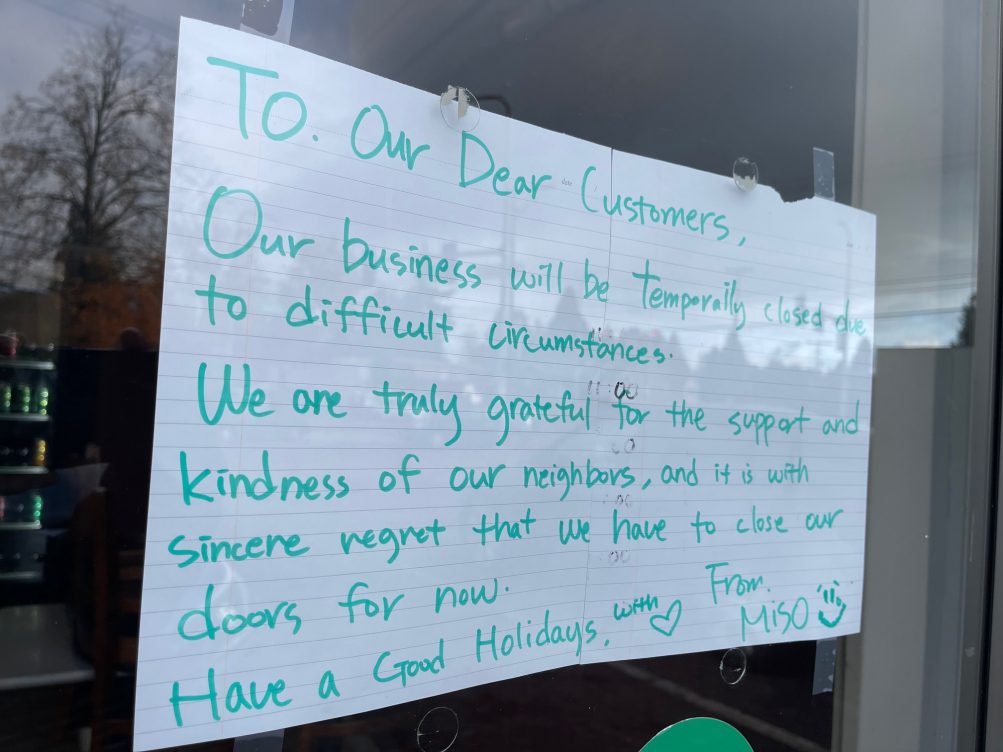 To. Our Dear Customers,
Our business will be temporaily closed due
to difficult circumstances.
We are truly grateful for the support and
kindness of our neighbors, and it is with
sincere regret that we have to close our
doors for now.
Have a Good Holidays. with ♡
From.
MiSO